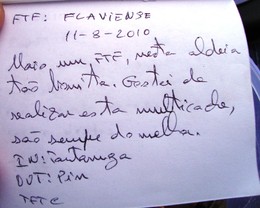 FTF: FLAVIENSE
11-8-2010
Mais um FTF, nesta aldeia
tão bonita. Gostei de
realizar esta multicache,
são sempre do melhor.
IN: Tartaruga
OUT: Pin
TFTC